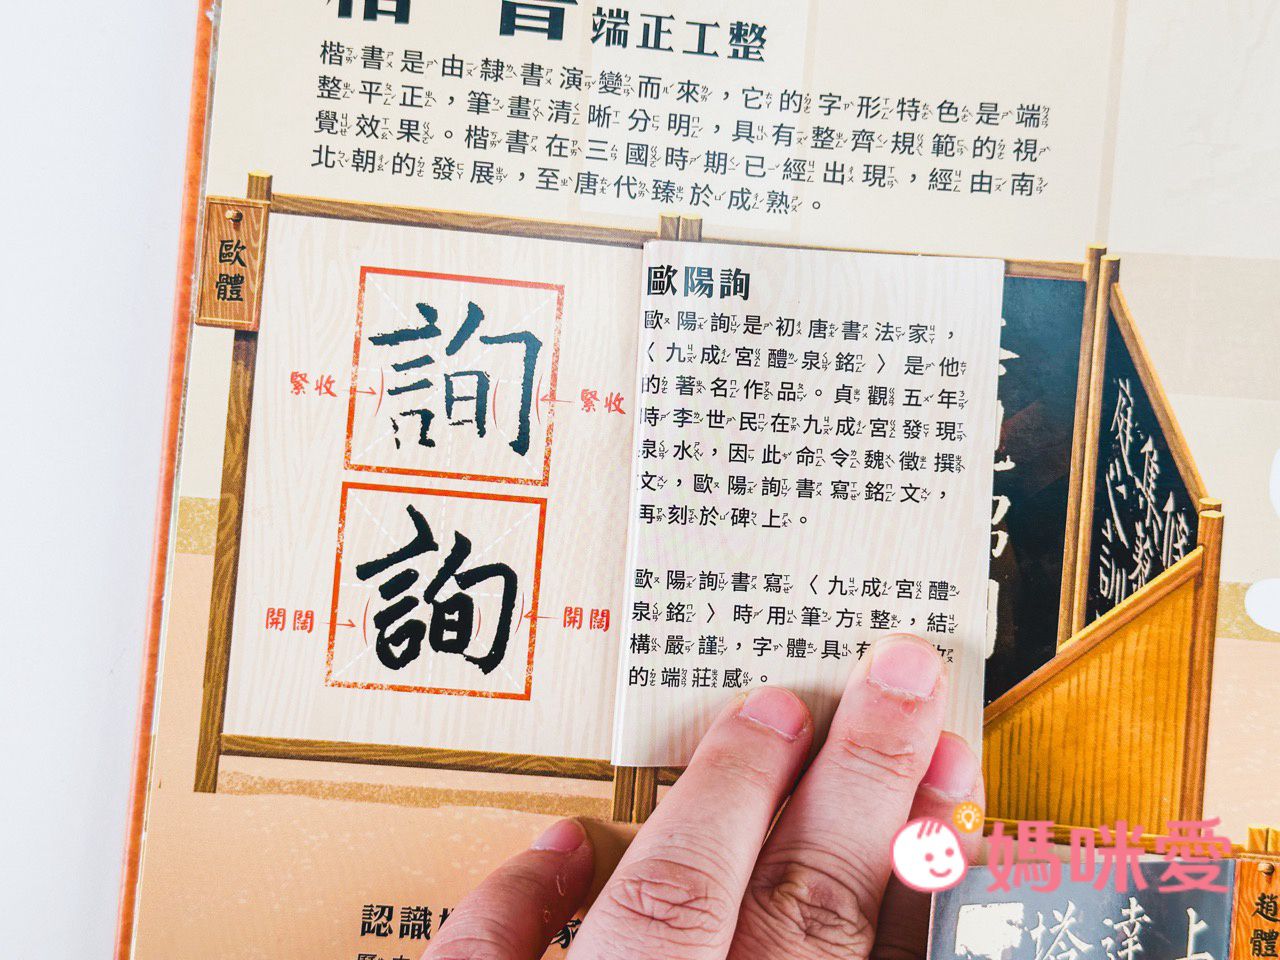 楷書 端正工整
楷書是由隸書演變而來，它的字形特色是端
整平正，筆畫清晰分明，具有整齊規範的視
覺效果。楷書在三國時期已經出現，經由南
北朝的發展，至唐代臻於成熟。
歐體
詢
緊收
緊收
詢
開闊
開闊
歐陽詢
歐陽詢是初唐書法家，
〈九成宮醴泉銘〉是他
的著名作品。貞觀五年
時李世民在九成宮發現
泉水，因此命令魏徵撰
文，歐陽詢書寫銘文，
再刻於碑上。
歐陽詢書寫〈九成宮醴
泉銘〉時用筆方整，結
構嚴謹，字體具有收
的端莊感。
認識
家
媽咪愛
塔達上
趙體